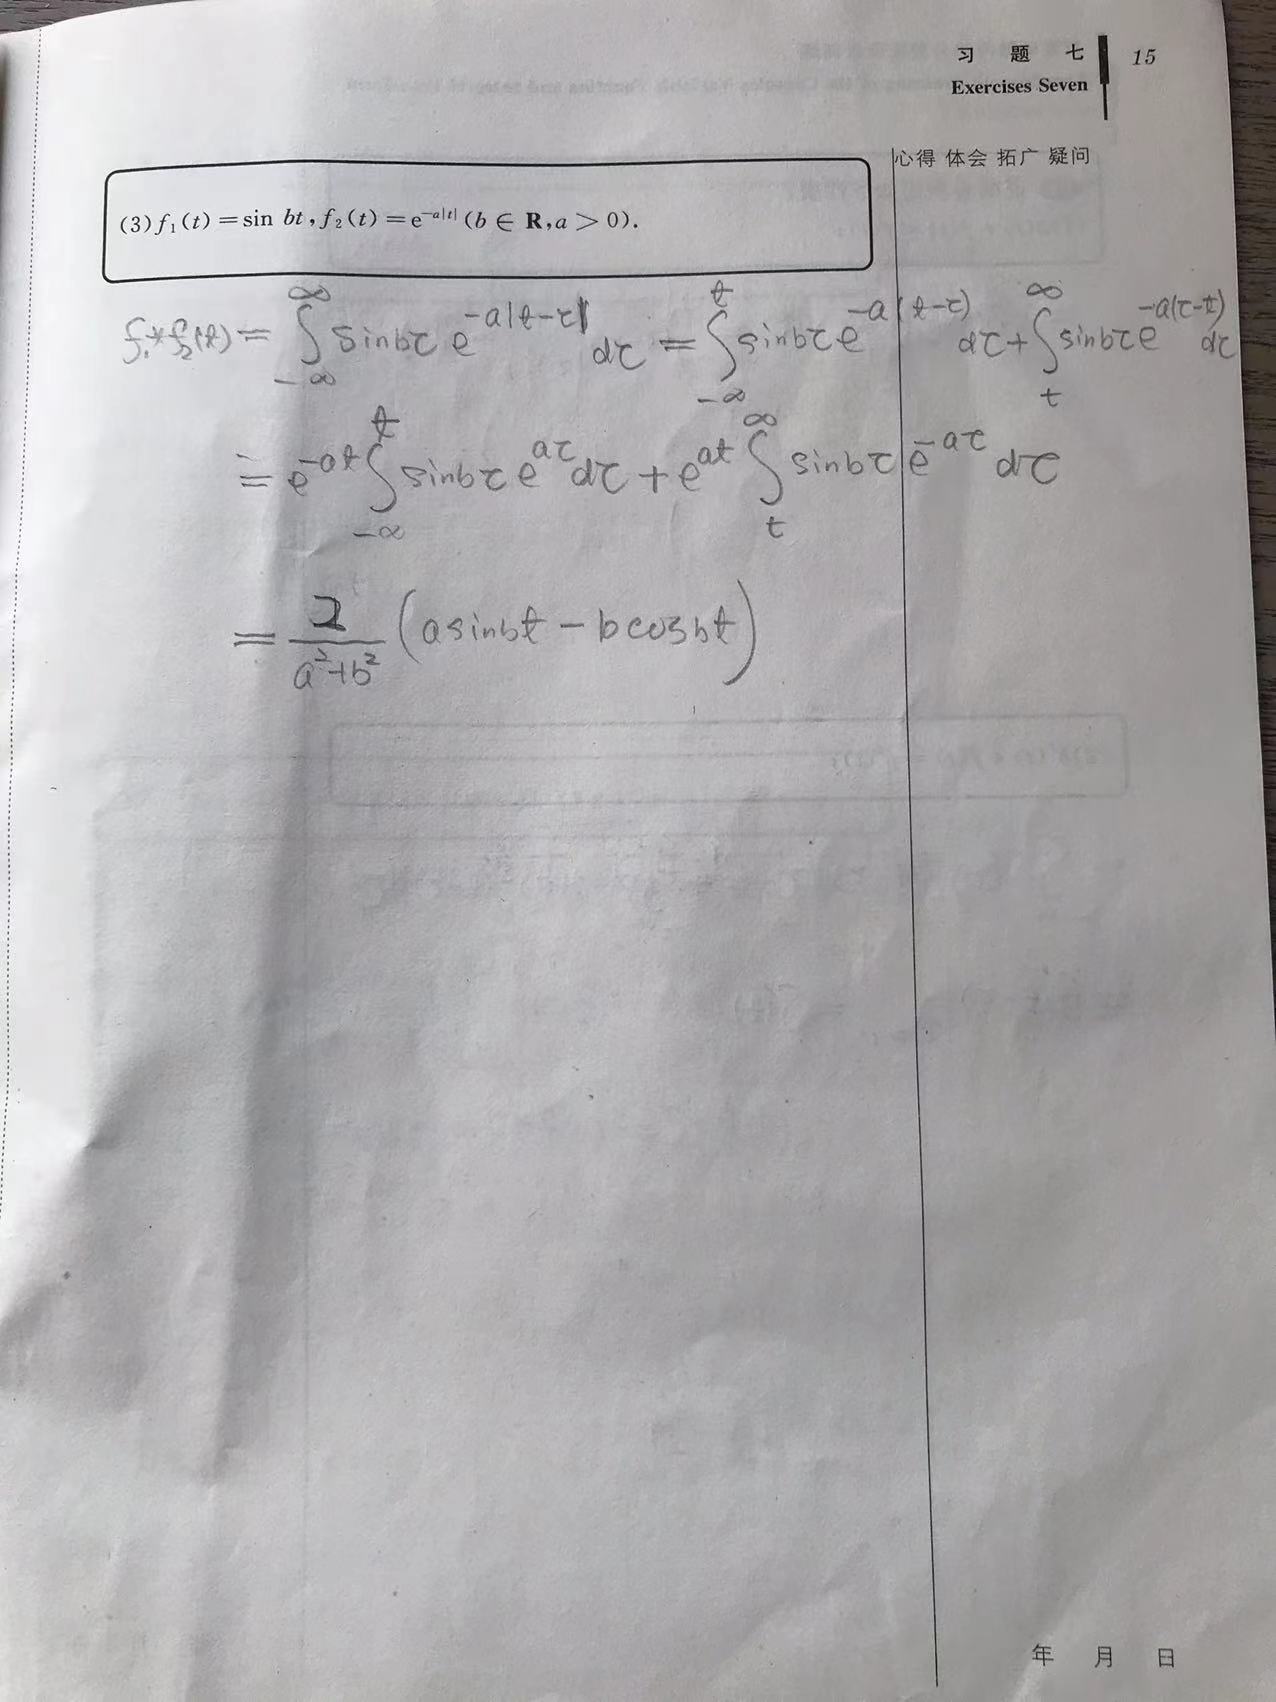 习 题 七 15
Exercises Seven
心得 体会 拓广 疑问
(3) f₁(t) = sin bt, f₂(t) = e^{-a|t|} (b ∈ R, a > 0).
f₁*f₂(t) = ∫_{-∞}^{∞} sinbτ e^{-a|t-τ|} dτ = ∫_{-∞}^{t} sinbτ e^{-a(t-τ)} dτ + ∫_{t}^{∞} sinbτ e^{-a(τ-t)} dτ
= e^{-at} ∫_{-∞}^{t} sinbτ e^{aτ} dτ + e^{at} ∫_{t}^{∞} sinbτ e^{-aτ} dτ
= \frac{2}{a²+b²} (a sinbt - b cosbt)
年 月 日